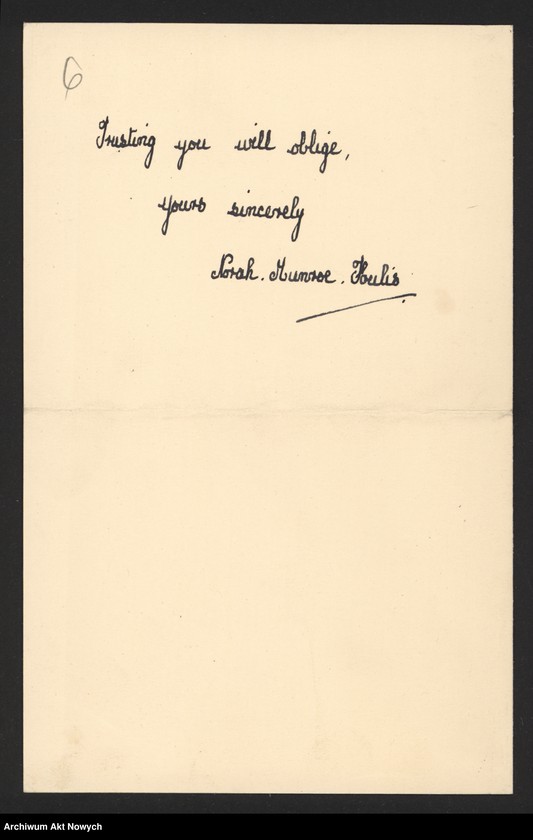 6
Trusting you will oblige,
yours sincerely
Norah. Munroe. Foulis
Archiwum Akt Nowych